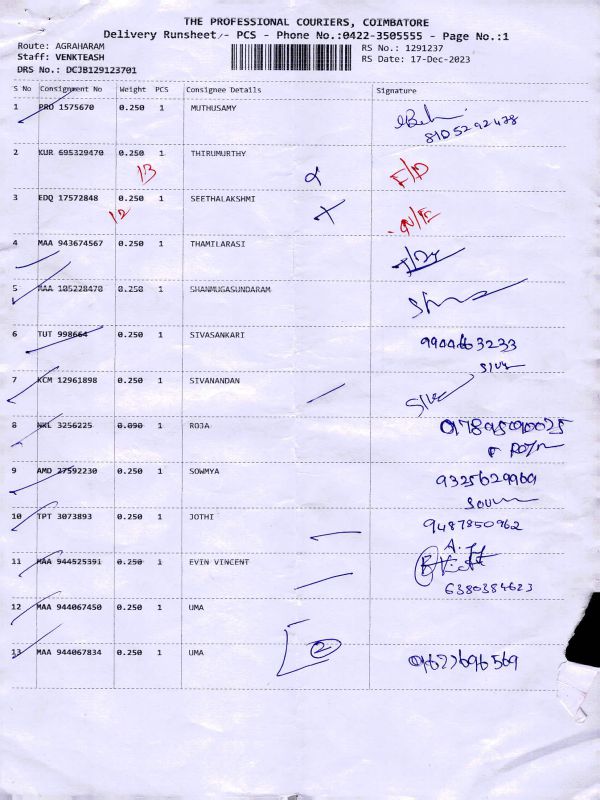 THE PROFESSIONAL COURIERS, COIMBATORE
Delivery Runsheet/- PCS - Phone No.:0422-3505555 - Page No.:1
Route: AGRAHARAM RS No.: 1291237
Staff: VENKTEASH RS Date: 17-Dec-2023
DRS No.: DCJB129123701
S No Consignment No Weight PCS Consignee Details Signature
1 PRO 1575670 0.250 1 MUTHUSAMY
2 KUR 695329470 0.250 1 THIRUMURTHY
13 F/D
3 EDQ 17572848 0.250 1 SEETHALAKSHMI X
12
4 MAA 943674567 0.250 1 THAMILARASI
5 MAA 105228470 0.250 1 SHANMUGASUNDARAM
6 TUT 998664 0.250 1 SIVASANKARI
7 KCM 12961898 0.250 1 SIVANANDAN
8 NKL 3256225 0.090 1 ROJA
9 AMD 27592230 0.250 1 SOWMYA 9325629969
10 TPT 3073893 0.250 1 JOTHI 9487850962
11 MAA 944525391 0.250 1 EVIN VINCENT
6380384623
12 MAA 944067450 0.250 1 UMA
2
13 MAA 944067834 0.250 1 UMA